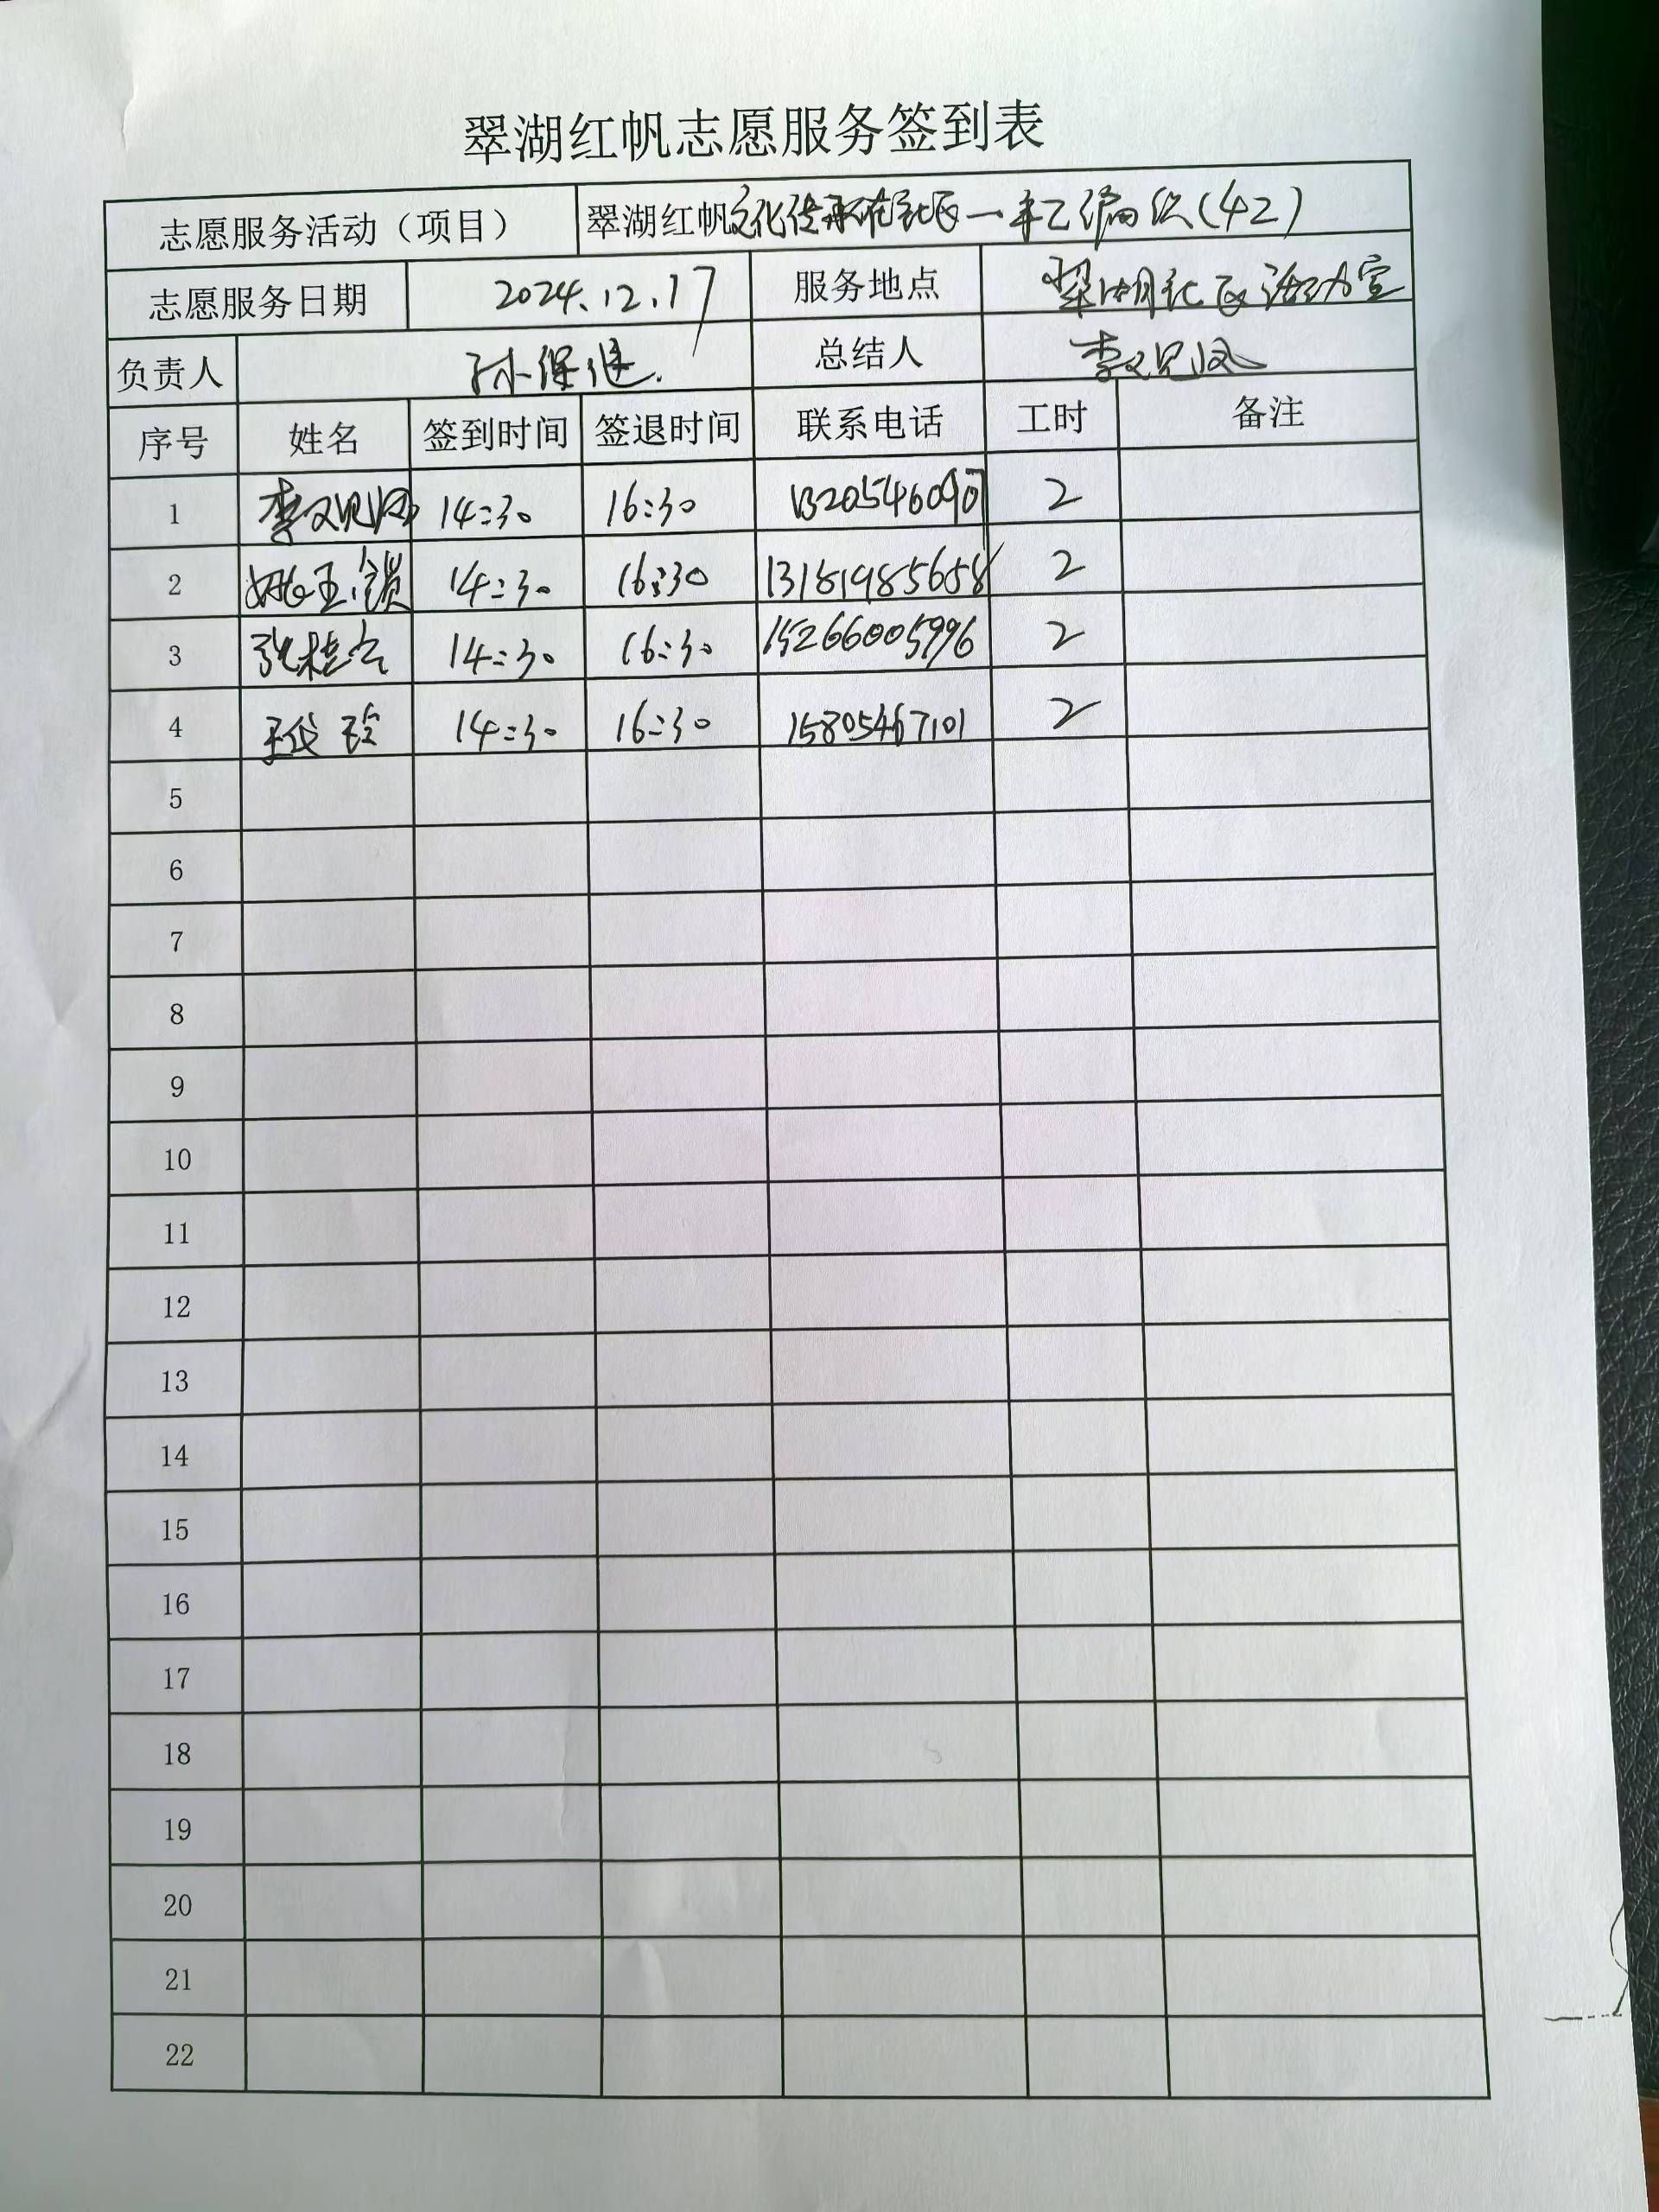 翠湖红帆志愿服务签到表
志愿服务活动（项目） 翠湖红帆文化传承在社区一手工编织(42)
志愿服务日期 2024.12.17 服务地点 翠湖社区活动室
负责人 孙保继 总结人 李观凤
序号 姓名 签到时间 签退时间 联系电话 工时 备注
1 李观凤 14:30 16:30 2
2 姚玉锁 14:30 16:30 13181985658 2
3 张桂 14:30 16:30 15266005996 2
4 14:30 16:30 15805467101 2
5
6
7
8
9
10
11
12
13
14
15
16
17
18
19
20
21
22